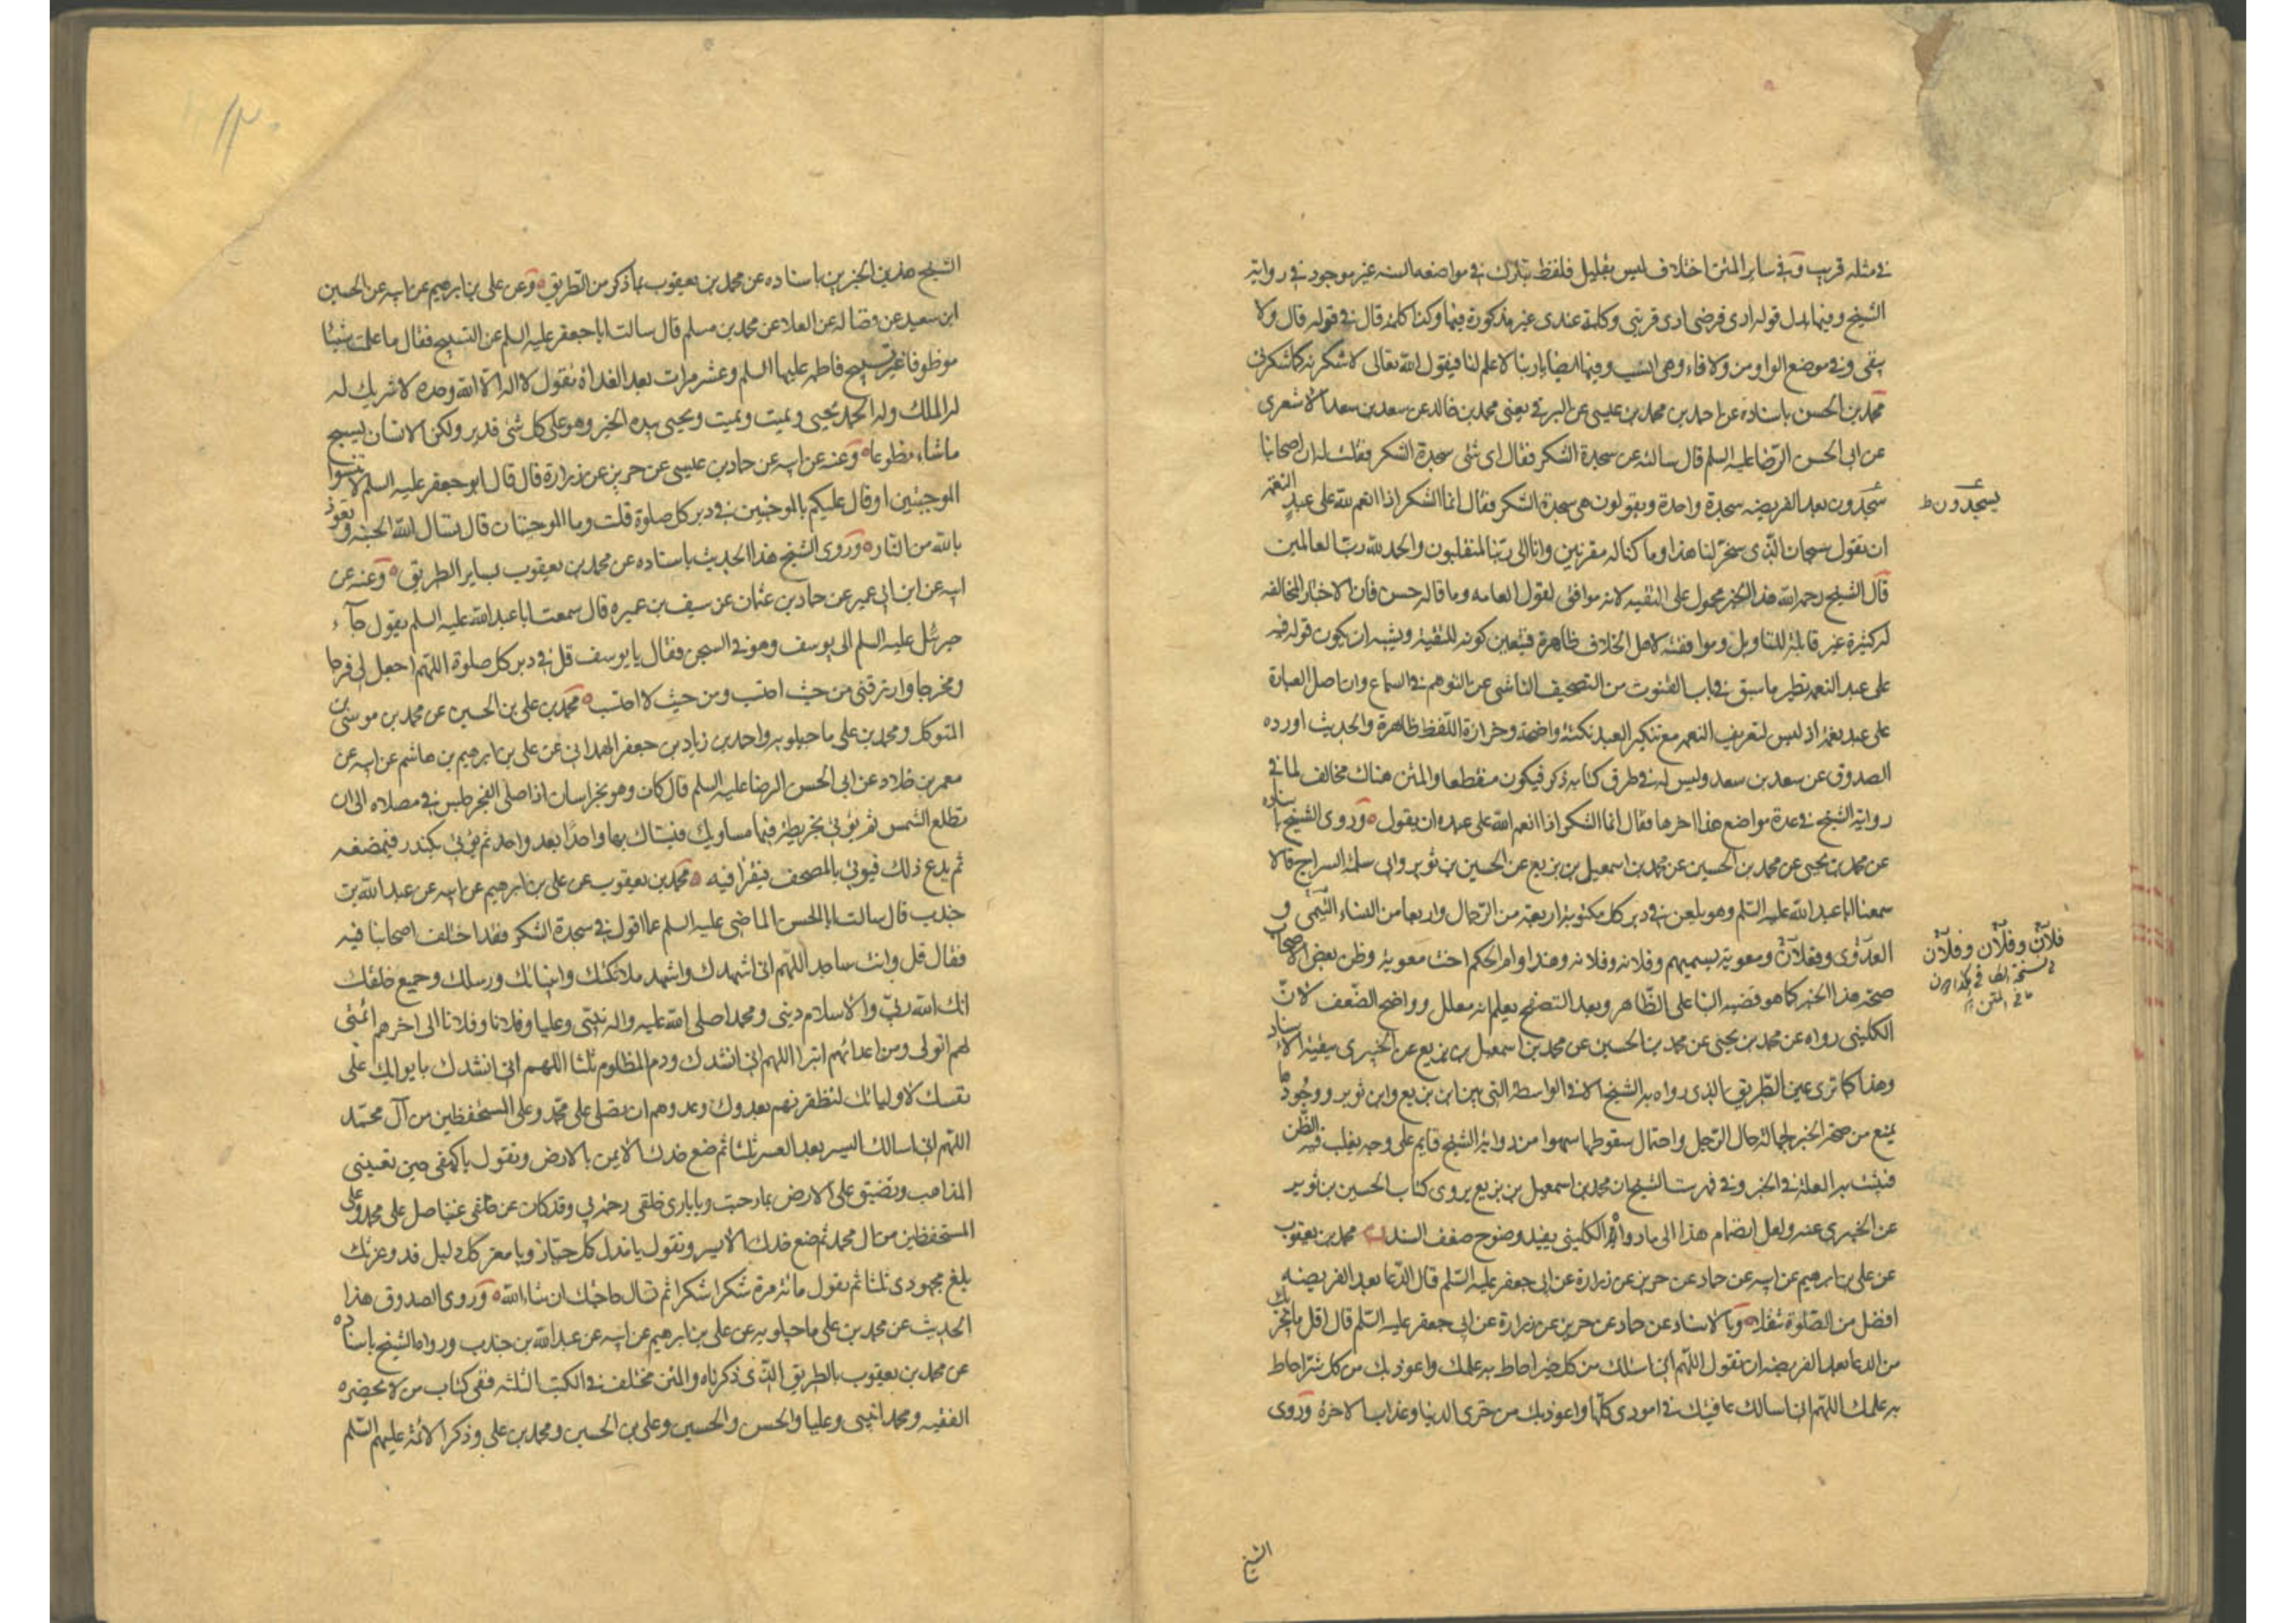 في مثله قريب وفي ساير المتن اختلاف ليس بقليل فلفظ تبارك في مواضعه الستة غير موجود في رواية
الشيخ وفيها بدل قوله ادى فرضى ادى قربتي وكلمة عندى غير مذكورة فيها وكذا كلمة قال في قوله قال ولا
يبقى وفي موضع الواو من ولا فاء وهى انسب وفيها ايضا يا ربنا لا علم لنا فيقول الله تعالى لاشكرنه كما شكرنى
محمد بن الحسن باسناده عن احمد بن محمد بن عيسى عن البرقي يعنى محمد بن خالد عن سعد بن سعد الاشعرى
عن ابى الحسن الرضا عليه السلم قال سالته عن سجدة الشكر فقال اى شئ سجدة الشكر فقلت له ان اصحابنا
يسجدون بعد الفريضة سجدة واحدة ويقولون هى سجدة الشكر فقال انما الشكر اذا انعم لله على عبد النعمة
يسجدون ط
ان يقول سبحان الذى سخر لنا هذا وما كنا له مقرنين وانا الى ربنا لمنقلبون والحمد لله رب العالمين
قال الشيخ رحمه الله هذا الخبر محمول على التقية لانه موافق لقول العامه وما قاله حسن فان الاخبار المخالفه
له كثيرة غير قابلة للتاويل وموافقته لاهل الخلاف ظاهرة فيتعين كونه للتقية ويشبه ان يكون قوله فيه
على عبد النعمه نظير ما سبق في باب القنوت من التصحيف الناشى عن التوهم في السماع وان اصل العبارة
على عبد نعمة اذ ليس لتعريف النعمه مع تنكير العبد نكتة واضحة وحزازة اللفظ ظاهرة والحديث اورده
الصدوق عن سعد بن سعد وليس له في طرق كتابه ذكر فيكون منقطعا والمتن هناك مخالف لما في
رواية الشيخ في عدة مواضع هذا اخرها فقال انما الشكر اذا انعم الله على عبده ان يقول وروى الشيخ باسناده
عن محمد بن يحيى عن محمد بن الحسين عن محمد بن اسمعيل بن بزيع عن الحسين بن ثوير وابى سلمة السراج قالا
سمعنا ابا عبد الله عليه السلم وهو يلعن في دبر كل مكتوبة اربعة من الرجال واربعا من النساء التيمى و
العدوى وفعلان ومعوية يسميهم وفلانه وفلانه وهند وام الحكم اخت معوية وظن بعض الاصحاب
فلان وفلان وفلان
صحة هذا الخبر كما هو قضية البنا على الظاهر وبعد التصفح يعلم انه معلل وواضح الضعف لان
الكلينى رواه عن محمد بن يحيى عن محمد بن الحسين عن محمد بن اسمعيل بن بزيع عن الخيبرى ببقية الاسناد
وهذا كما ترى عين الطريق الذى رواه به الشيخ الا في الواسطة التى بين ابن بزيع وابن ثوير ووجودها
يمنع من صحة الخبر لجهالة حال الرجل واحتمال سقوطها سهوا من رواية الشيخ قايم على وجه يغلب فيه الظن
فيثبت به العلة في الخبر وفي فهرست الشيخ ان محمد بن اسمعيل بن بزيع يروى كتاب الحسين بن ثوير
عن الخيبرى عنه ولعل انضمام هذا الى ما رواه الكلينى يفيد وضوح ضعف السند محمد بن يعقوب
عن على بن ابرهيم عن ابيه عن حماد عن حريز عن زرارة عن ابى جعفر عليه السلم قال الدعا بعد الفريضه
افضل من الصلوة تنفلا وبالاسناد عن حماد عن حريز عن زرارة عن ابى جعفر عليه السلم قال اقل ما يجزيك
من الدعا بعد الفريضه ان تقول اللهم انى اسئلك من كل خير احاط به علمك واعوذ بك من كل شر احاط
به علمك اللهم انى اسالك عافيتك في امورى كلها واعوذ بك من خزى الدنيا وعذاب الاخرة وروى
الشيخ
الشيخ هذين الخبرين باسناده عن محمد بن يعقوب بما ذكر من الطريق وعن على بن ابرهيم عن ابيه عن الحسين
ابن سعيد عن فضاله عن العلا عن محمد بن مسلم قال سالت ابا جعفر عليه السلم عن التسبيح فقال ما علمت شيئا
موظوفا غير تسبيح فاطمه عليها السلم وعشر مرات بعد الغداة تقول لا اله الا الله وحده لا شريك له
له الملك وله الحمد يحيى ويميت ويميت ويحيى بيده الخير وهو على كل شئ قدير ولكن الانسان يسبح
ماشاء تطوعا وعنه عن ابيه عن حماد بن عيسى عن حريز عن زرارة قال قال ابو جعفر عليه السلم لا تنسوا
الموجبتين او قال عليكم بالموجبتين في دبر كل صلوة قلت وما الموجبتان قال تسال الله الجنه وتعوذ
بالله من النار وروى الشيخ هذا الحديث باسناده عن محمد بن يعقوب بساير الطريق وعنه عن
ابيه عن ابن ابى عمير عن حماد بن عثمان عن سيف بن عميره قال سمعت ابا عبد الله عليه السلم يقول جآء
جبرئيل عليه السلم الى يوسف وهو في السجن فقال يا يوسف قل في دبر كل صلوة اللهم اجعل لى فرجا
ومخرجا وارزقنى من حيث احتسب ومن حيث لا احتسب محمد بن على بن الحسين عن محمد بن موسى بن
المتوكل ومحمد بن على ماجيلويه واحمد بن زياد بن جعفر الهمدانى عن على بن ابرهيم بن هاشم عن ابيه عن
معمر بن خلاد عن ابى الحسن الرضا عليه السلم قال كان وهو بخراسان اذا صلى الفجر جلس في مصلاه الى ان
تطلع الشمس ثم يؤتى بخريطة فيها مساويك فيستاك بها واحدا بعد واحد ثم يؤتى بكندر فيمضغه
ثم يدع ذلك فيوتى بالمصحف فيقرا فيه محمد بن يعقوب عن على بن ابرهيم عن ابيه عن عبد الله بن
جندب قال سالت ابا الحسن الماضى عليه السلم عما اقول في سجدة الشكر فقد اختلف اصحابنا فيه
فقال قل وانت ساجد اللهم انى اشهدك واشهد ملائكتك وانبيائك ورسلك وجميع خلقك
انك الله ربى والاسلام دينى ومحمدا صلى الله عليه واله نبيى وعليا وفلانا وفلانا الى اخرهم ائمتى
بهم اتولى ومن اعدائهم اتبرا اللهم انى انشدك ودم المظلوم ثلثا اللهم انى انشدك بايوائك على
نفسك لاوليائك لتظفرنهم بعدوك وعدوهم ان تصلى على محمد وعلى المستحفظين من آل محمد
اللهم انى اسالك اليسر بعد العسر ثلثا ثم ضع خدك الايمن بالارض وتقول يا كهفى حين تعيينى
المذاهب وتضيق على الارض بما رحبت ويا بارى خلقى رحمة بى وقد كان عن خلقى غنيا صل على محمد وعلى
المستحفظين من ال محمد ثم ضع خدك الايسر وتقول يا مذل كل جبار ويا معز كل ذليل قد وعزتك
بلغ مجهودى ثلثا ثم تقول مائة مرة شكرا شكرا ثم تسال حاجتك ان شاء الله وروى الصدوق هذا
الحديث عن محمد بن على ماجيلويه عن على بن ابرهيم عن ابيه عن عبد الله بن جندب ورواه الشيخ باسناده
عن محمد بن يعقوب بالطريق الذى ذكرناه والمتن مختلف في الكتب الثلثه ففى كتاب من لا يحضره
الفقيه ومحمد انبيى وعليا والحسن والحسين وعلى بن الحسين ومحمد بن على وذكر الائمة عليهم السلم